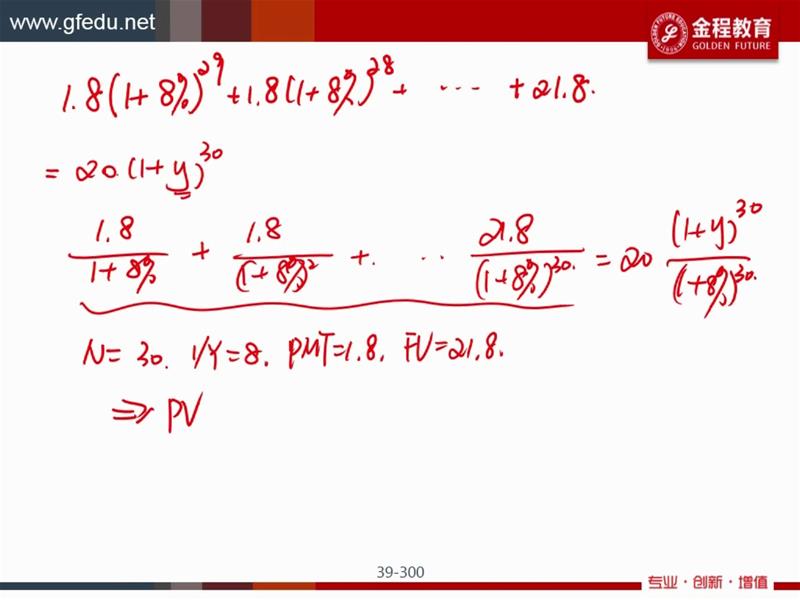 www.gfedu.net
金程教育
GOLDEN FUTURE
1.8(1+8%)^29+1.8(1+8%)^28+ ··· +21.8.
=20.(1+y)^30
1.8/(1+8%) + 1.8/(1+8%)^2 +. ·· 21.8/(1+8%)^30. =20 (1+y)^30/(1+8%)^30.
N=30. I/Y=8. PMT=1.8. FV=21.8.
⇒ PV
39-300
专业·创新·增值